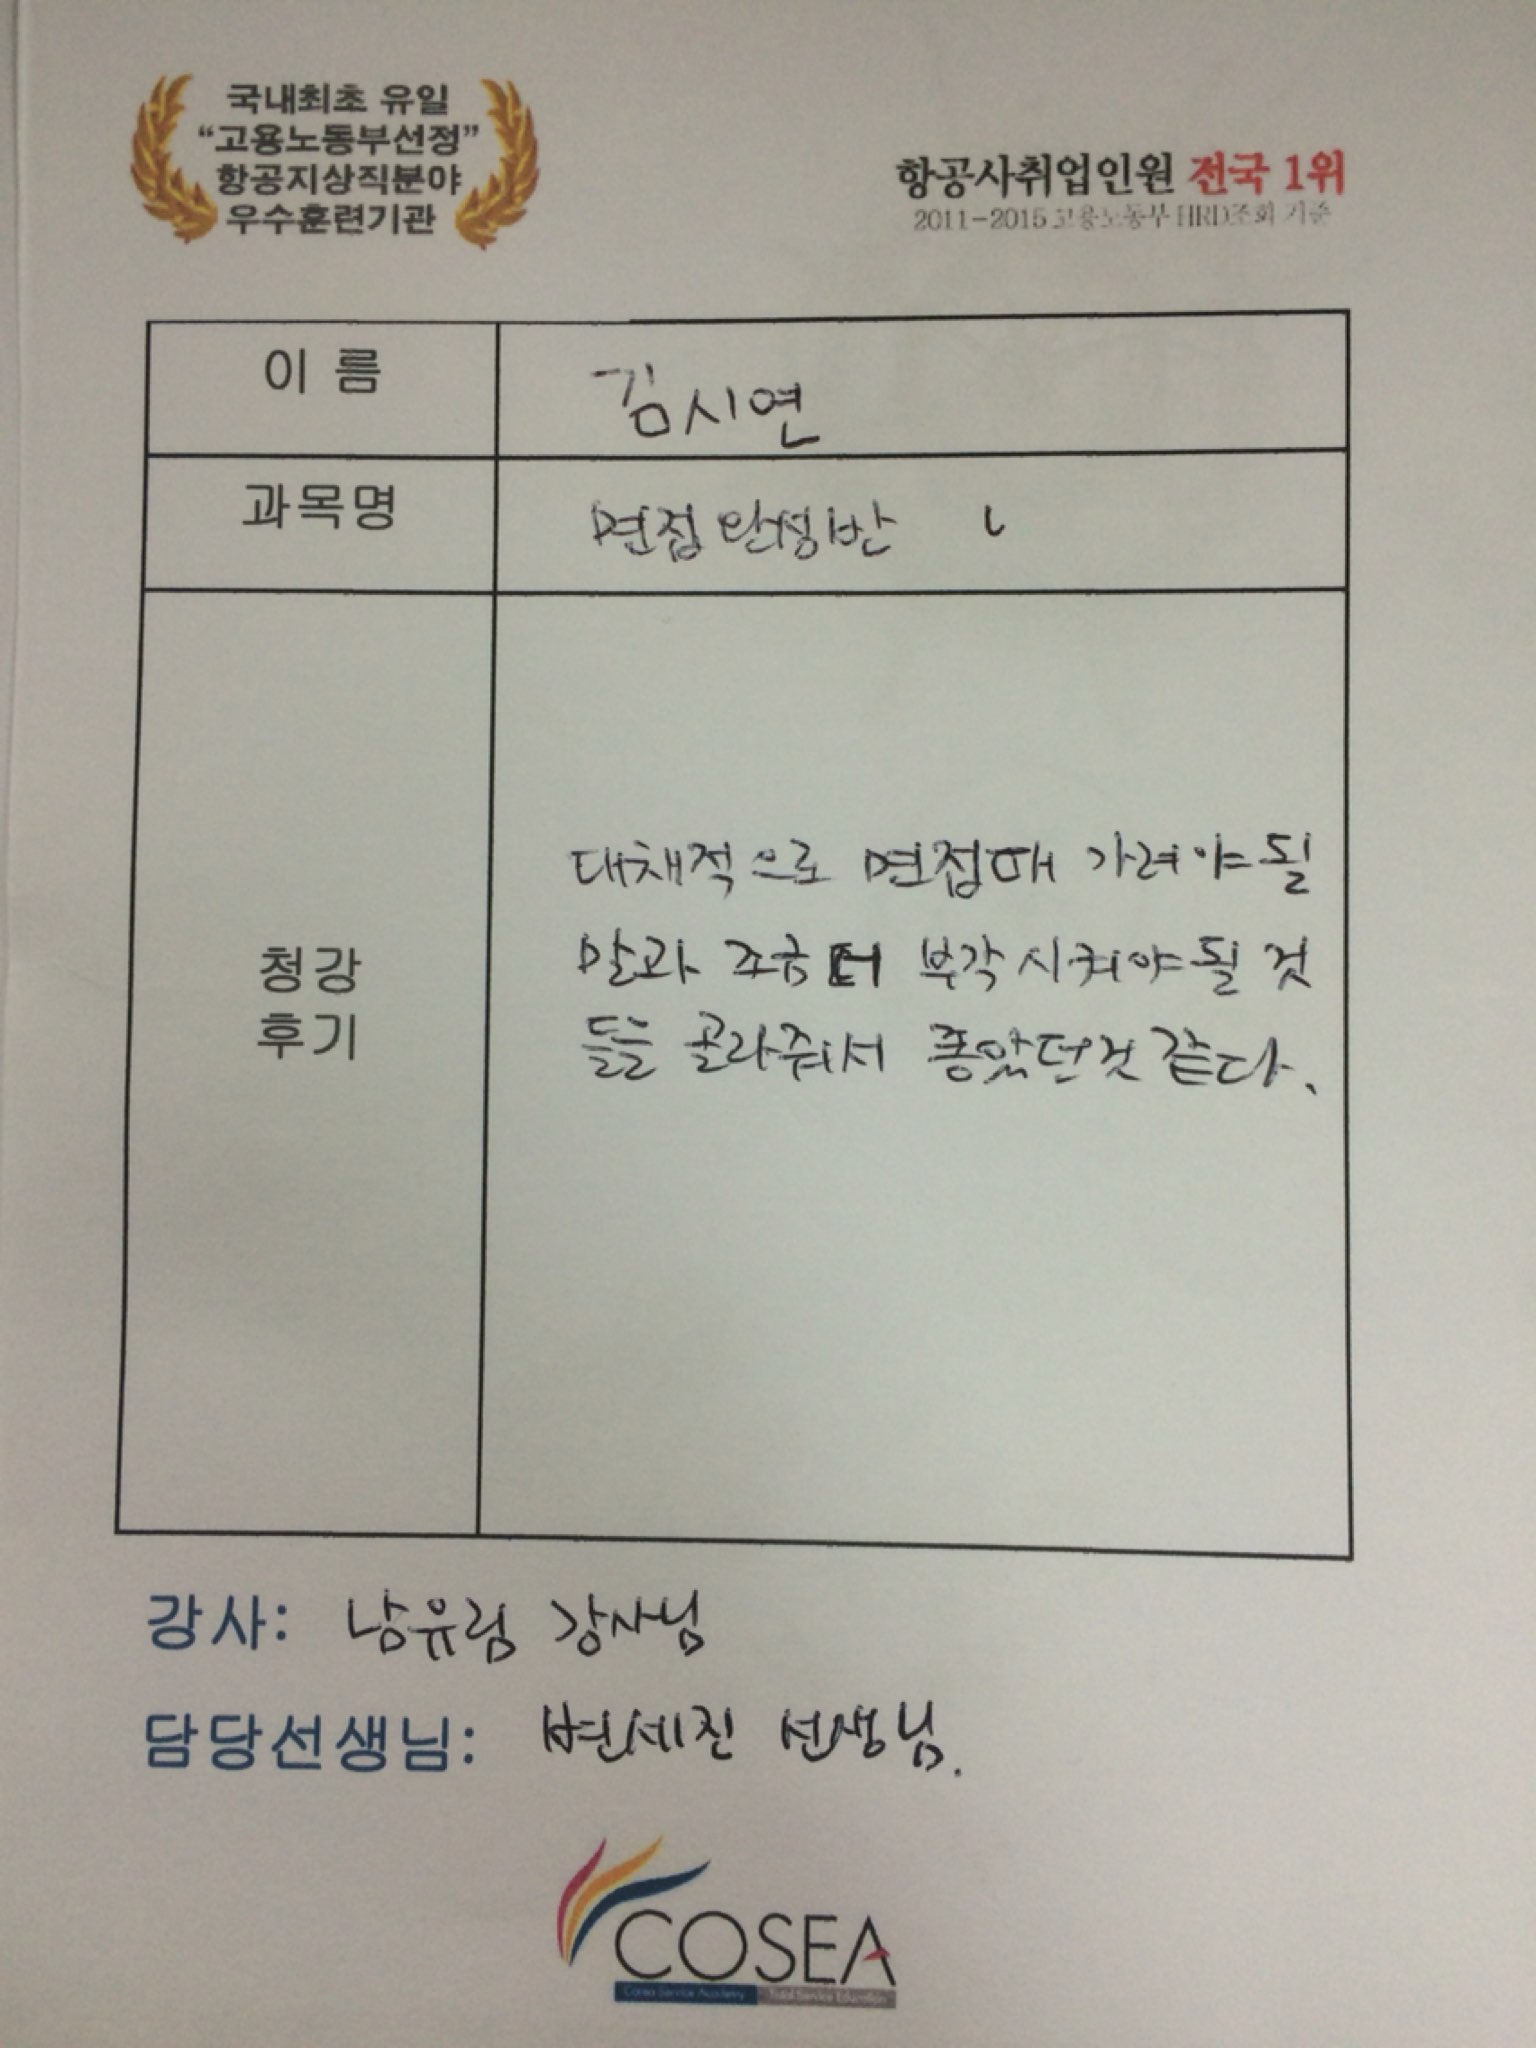 국내최초 유일
“고용노동부선정”
항공지상직분야
우수훈련기관
항공사취업인원 전국 1위
2011-2015 고용노동부 HRD조회 기준
이 름
김시연
과목명
면접완성반
청강
후기
대채적으로 면접때 가려야될
말과 조금 더 부각시켜야될 것
들을 골라줘서 좋았던것 같다.
강사: 남유림 강사님
담당선생님: 변세진 선생님.
COSEA
Corea Service Academy Total Service Education